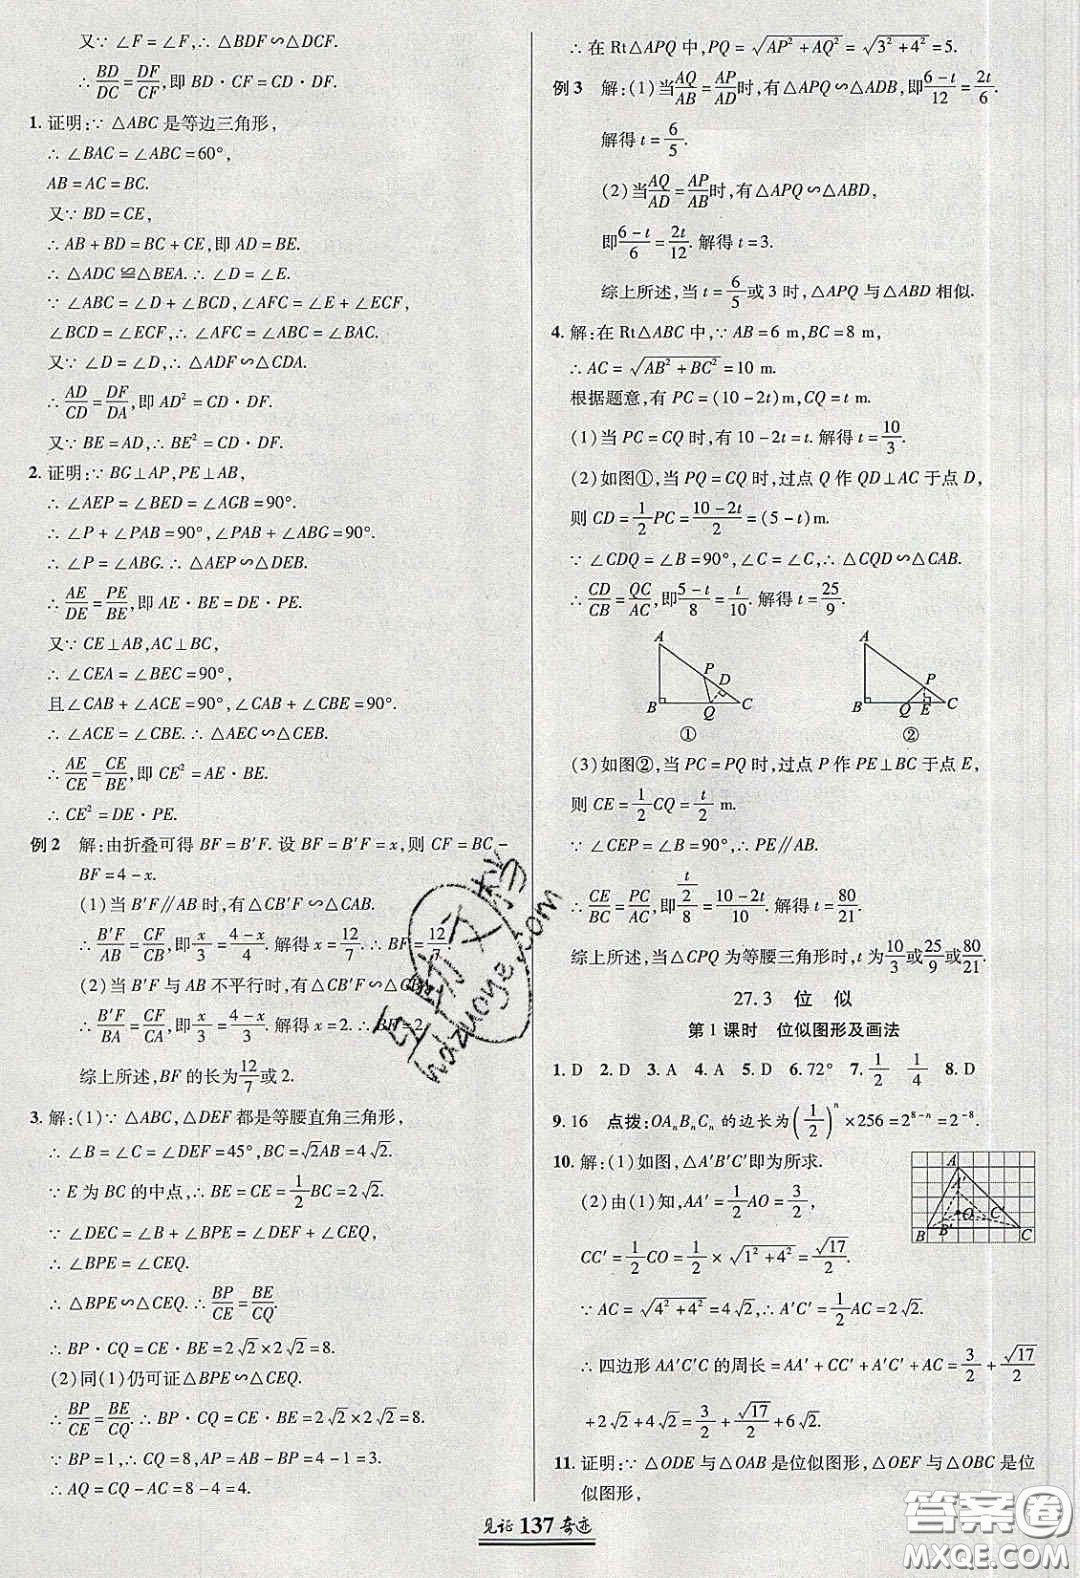 又∵ ∠F = ∠F,∴ △BDF∽△DCF.
∴ BD/DC = DF/CF,即 BD·CF = CD·DF.
1. 证明:∵ △ABC 是等边三角形,
∴ ∠BAC = ∠ABC = 60°,
AB = AC = BC.
又∵ BD = CE,
∴ AB + BD = BC + CE,即 AD = BE.
∴ △ADC ≌ △BEA. ∴ ∠D = ∠E.
∵ ∠ABC = ∠D + ∠BCD,∠AFC = ∠E + ∠ECF,
∠BCD = ∠ECF,∴ ∠AFC = ∠ABC = ∠BAC.
又∵ ∠D = ∠D,∴ △ADF∽△CDA.
∴ AD/CD = DF/DA,即 AD² = CD·DF.
又∵ BE = AD,∴ BE² = CD·DF.
2. 证明:∵ BG⊥AP,PE⊥AB,
∴ ∠AEP = ∠BED = ∠AGB = 90°.
∴ ∠P + ∠PAB = 90°,∠PAB + ∠ABG = 90°.
∴ ∠P = ∠ABG. ∴ △AEP∽△DEB.
∴ AE/DE = PE/BE,即 AE·BE = DE·PE.
又∵ CE⊥AB,AC⊥BC,
∴ ∠CEA = ∠BEC = 90°,
且∠CAB + ∠ACE = 90°,∠CAB + ∠CBE = 90°.
∴ ∠ACE = ∠CBE. ∴ △AEC∽△CEB.
∴ AE/CE = CE/BE,即 CE² = AE·BE.
∴ CE² = DE·PE.
例2 解:由折叠可得 BF = B′F. 设 BF = B′F = x,则 CF = BC -
BF = 4 - x.
(1)当 B′F∥AB 时,有△CB′F∽△CAB.
∴ B′F/AB = CF/CB,即 x/3 = (4-x)/4. 解得 x = 12/7. ∴ BF = 12/7.
(2)当 B′F 与 AB 不平行时,有△CB′F∽△
∴ B′F/BA = CF/CA,即 x/3 = (4-x)/3. 解得 x = 2. ∴ BF = 2.
综上所述,BF 的长为 12/7 或 2.
3. 解:(1)∵ △ABC,△DEF 都是等腰直角三角形,
∴ ∠B = ∠C = ∠DEF = 45°,BC = √2AB = 4√2.
∵ E 为 BC 的中点,∴ BE = CE = 1/2 BC = 2√2.
∵ ∠DEC = ∠B + ∠BPE = ∠DEF + ∠CEQ,
∴ ∠BPE = ∠CEQ.
∴ △BPE∽△CEQ. ∴ BP/CE = BE/CQ.
∴ BP·CQ = CE·BE = 2√2×2√2 = 8.
(2)同(1)仍可证△BPE∽△CEQ.
∴ BP/CE = BE/CQ. ∴ BP·CQ = CE·BE = 2√2×2√2 = 8.
∵ BP = 1,∴ CQ = 8,AP = AB - BP = 4 - 1 = 3.
∴ AQ = CQ - AC = 8 - 4 = 4.
∴ 在 Rt△APQ 中,PQ = √(AP² + AQ²) = √(3² + 4²) = 5.
例3 解:(1)当 AQ/AB = AP/AD 时,有△APQ∽△ADB,即 (6-t)/12 = 2t/6.
解得 t = 6/5.
(2)当 AQ/AD = AP/AB 时,有△APQ∽△ABD,
即 (6-t)/6 = 2t/12. 解得 t = 3.
综上所述,当 t = 6/5 或 3 时,△APQ 与△ABD 相似.
4. 解:在 Rt△ABC 中,∵ AB = 6 m,BC = 8 m,
∴ AC = √(AB² + BC²) = 10 m.
根据题意,有 PC = (10 - 2t)m,CQ = t m.
(1)当 PC = CQ 时,有 10 - 2t = t. 解得 t = 10/3.
(2)如图①,当 PQ = CQ 时,过点 Q 作 QD⊥AC 于点 D,
则 CD = 1/2 PC = (10-2t)/2 = (5 - t)m.
∵ ∠CDQ = ∠B = 90°,∠C = ∠C,∴ △CQD∽△CAB.
∴ CD/CB = QC/AC,即 (5-t)/8 = t/10. 解得 t = 25/9.
A P D B Q C
①
A P B Q E C
②
(3)如图②,当 PC = PQ 时,过点 P 作 PE⊥BC 于点 E,
则 CE = 1/2 CQ = t/2 m.
∵ ∠CEP = ∠B = 90°,∴ PE∥AB.
∴ CE/BC = PC/AC,即 (t/2)/8 = (10-2t)/10. 解得 t = 80/21.
综上所述,当△CPQ 为等腰三角形时,t 为 10/3 或 25/9 或 80/21.
27.3 位 似
第1课时 位似图形及画法
1. D 2. D 3. A 4. A 5. D 6. 72° 7. 1/2 1/4 8. D
9. 16 点拨:OAₙBₙCₙ 的边长为 (1/2)ⁿ × 256 = 2⁸⁻ⁿ = 2⁻⁸.
10. 解:(1)如图,△A′B′C′即为所求.
(2)由(1)知,AA′ = 1/2 AO = 3/2,
CC′ = 1/2 CO = 1/2 × √(1² + 4²) = √17/2.
∵ AC = √(4² + 4²) = 4√2,∴ A′C′ = 1/2 AC = 2√2.
∴ 四边形 AA′C′C 的周长 = AA′ + CC′ + A′C′ + AC = 3/2 + √17/2
+ 2√2 + 4√2 = 3/2 + √17/2 + 6√2.
11. 证明:∵ △ODE 与△OAB 是位似图形,△OEF 与△OBC 是位
似图形,
见证 137 奇迹
答案圈
MXQE.COM